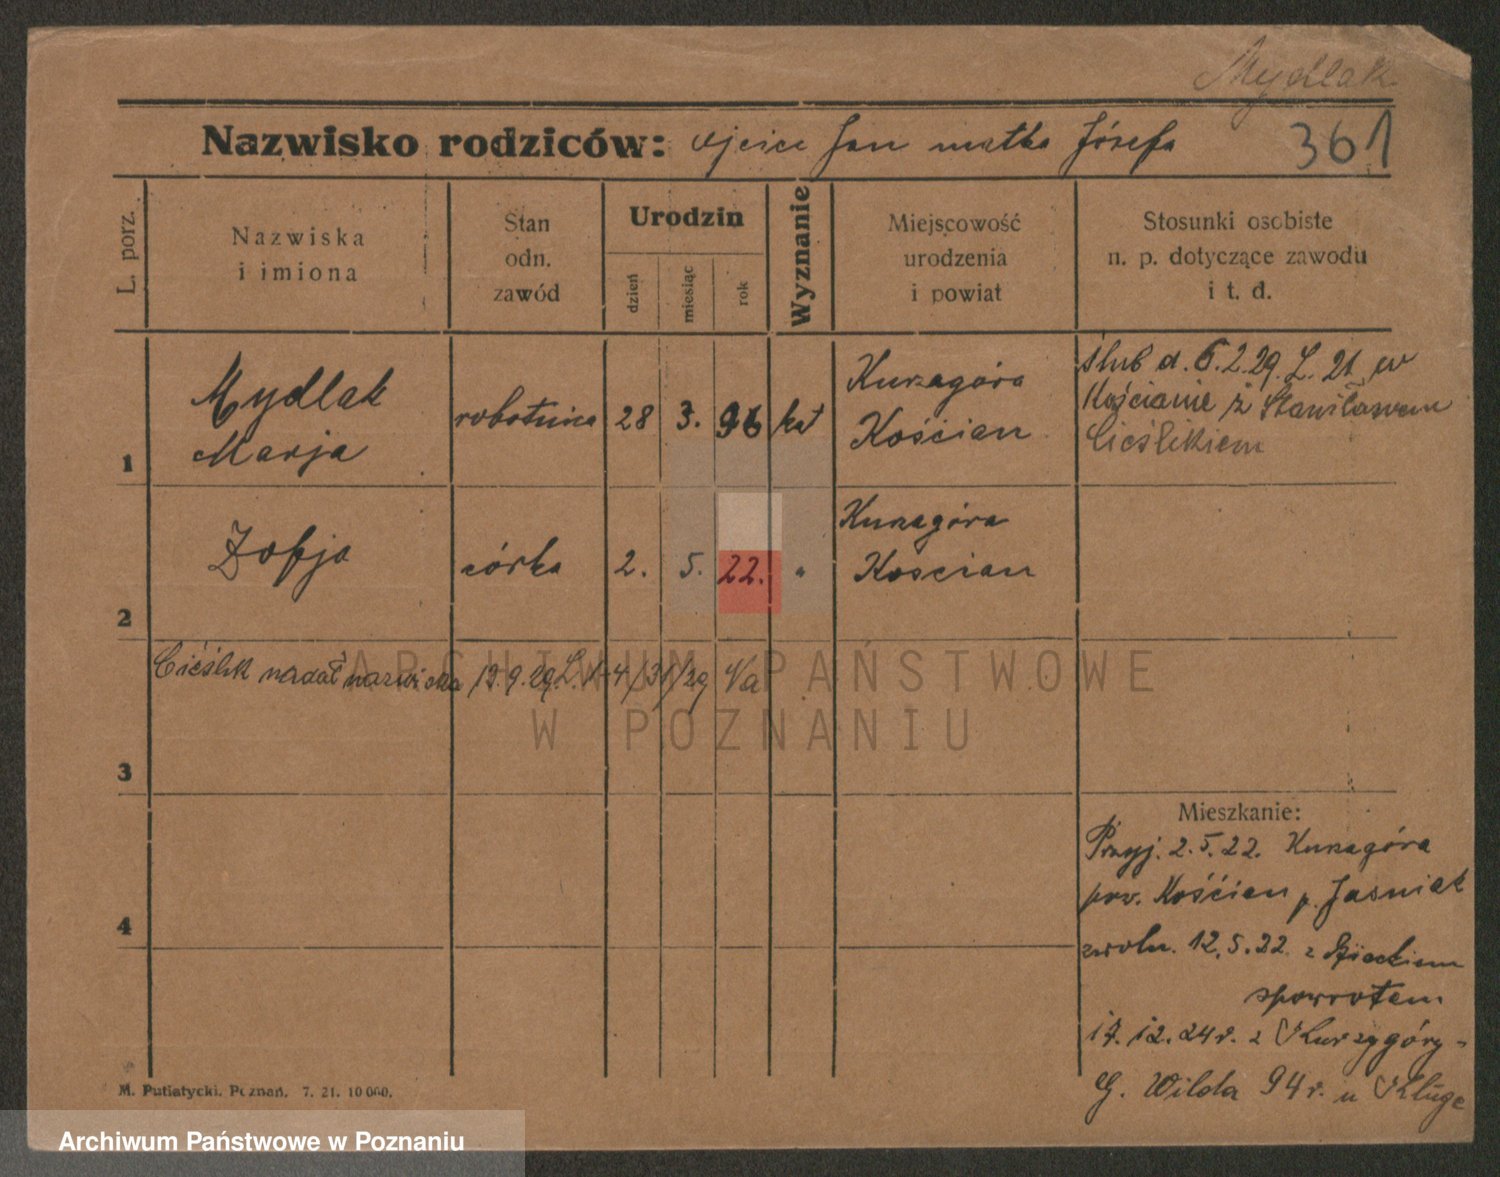 Mydlak
Nazwisko rodziców: ojciec Jan matka Józefa 361
L. porz.
Nazwiska
i imiona
Stan
odn.
zawód
Urodzin
dzień
miesiąc
rok
Wyznanie
Miejscowość
urodzenia
i powiat
Stosunki osobiste
n. p. dotyczące zawodu
i t. d.
1
Mydlak
Marja
robotnica
28 3. 96
kat
Kurzagóra
Kościan
ślub d. 6.2.29. L. 21 w
Kościanie z Stanisławem
Cieślikiem
2
Zofja
córka
2. 5. 22. "
Kurzagóra
Koscian
Cieślik nadał nazwisko 19.9.29. L.
3
Mieszkanie:
Przyj. 2.5.22. Kurzagóra
pow. Kościan p. Jasniak
zwoln. 12.5.22 z dzieckiem
spowrotem
17. 12. 24 r. z Kurzygóry -
G. Wilda 94 r. u Kluge
4
M. Putiatycki, Poznań. 7. 21. 10 000.
ARCHIWUM PAŃSTWOWE
W POZNANIU
Archiwum Państwowe w Poznaniu